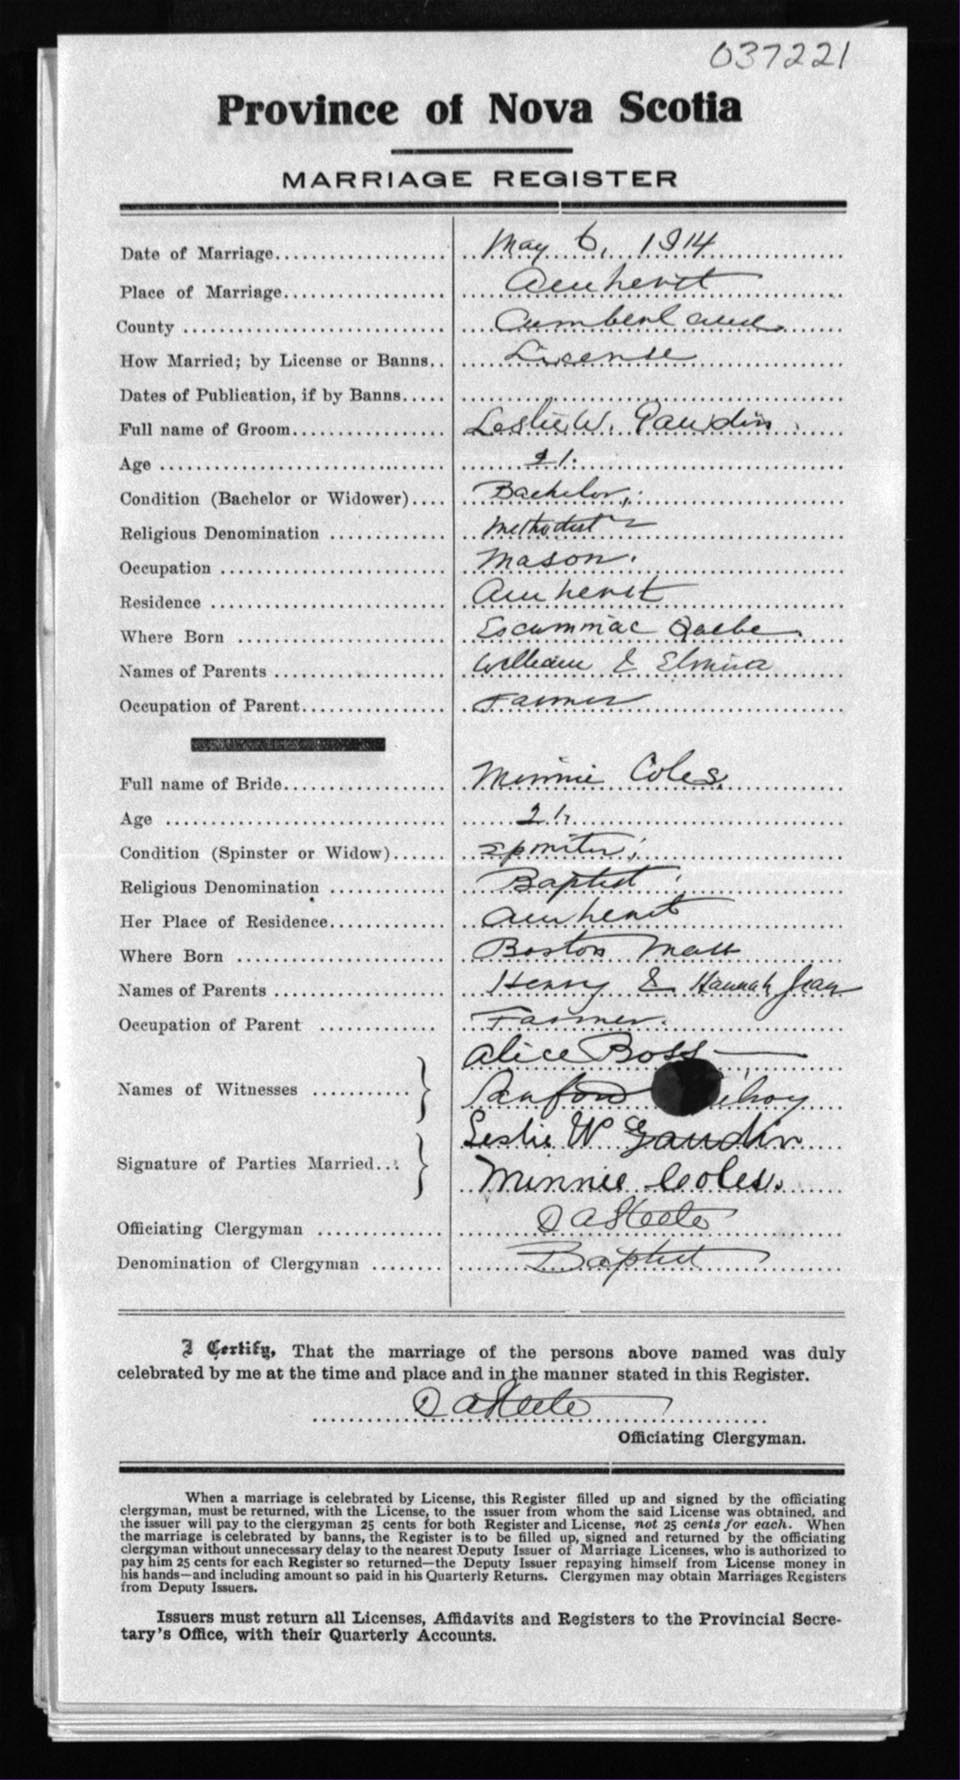 037221
Province of Nova Scotia
MARRIAGE REGISTER
Date of Marriage.................... May 6, 1914
Place of Marriage.................. Amherst
County ............................. Cumberland
How Married; by License or Banns.. License
Dates of Publication, if by Banns.....
Full name of Groom................. Leslie W. Gaudin
Age ............................... 21.
Condition (Bachelor or Widower).... Bachelor
Religious Denomination ............. Methodist
Occupation ......................... Mason.
Residence .......................... Amherst
Where Born ........................ Escuminac Quebec
Names of Parents ................... William & Elmira
Occupation of Parent................ Farmer
Full name of Bride.................. Minnie Coles
Age ............................... 21
Condition (Spinster or Widow)...... Spinster
Religious Denomination ............. Baptist
Her Place of Residence............. Amherst
Where Born ........................ Boston Mass
Names of Parents ................... Henry & Hannah Jean
Occupation of Parent .............. Farmer.
Alice Boss
Names of Witnesses ........... Sanford
Leslie W Gaudin
Signature of Parties Married... Minnie Coles.
Officiating Clergyman .............. D A Steele
Denomination of Clergyman ........ Baptist
I Certify, That the marriage of the persons above named was duly
celebrated by me at the time and place and in the manner stated in this Register.
D A Steele
Officiating Clergyman.
When a marriage is celebrated by License, this Register filled up and signed by the officiating
clergyman, must be returned, with the License, to the issuer from whom the said License was obtained, and
the issuer will pay to the clergyman 25 cents for both Register and License, not 25 cents for each. When
the marriage is celebrated by banns, the Register is to be filled up, signed and returned by the officiating
clergyman without unnecessary delay to the nearest Deputy Issuer of Marriage Licenses, who is authorized to
pay him 25 cents for each Register so returned—the Deputy Issuer repaying himself from License money in
his hands—and including amount so paid in his Quarterly Returns. Clergymen may obtain Marriages Registers
from Deputy Issuers.
Issuers must return all Licenses, Affidavits and Registers to the Provincial Secre-
tary's Office, with their Quarterly Accounts.